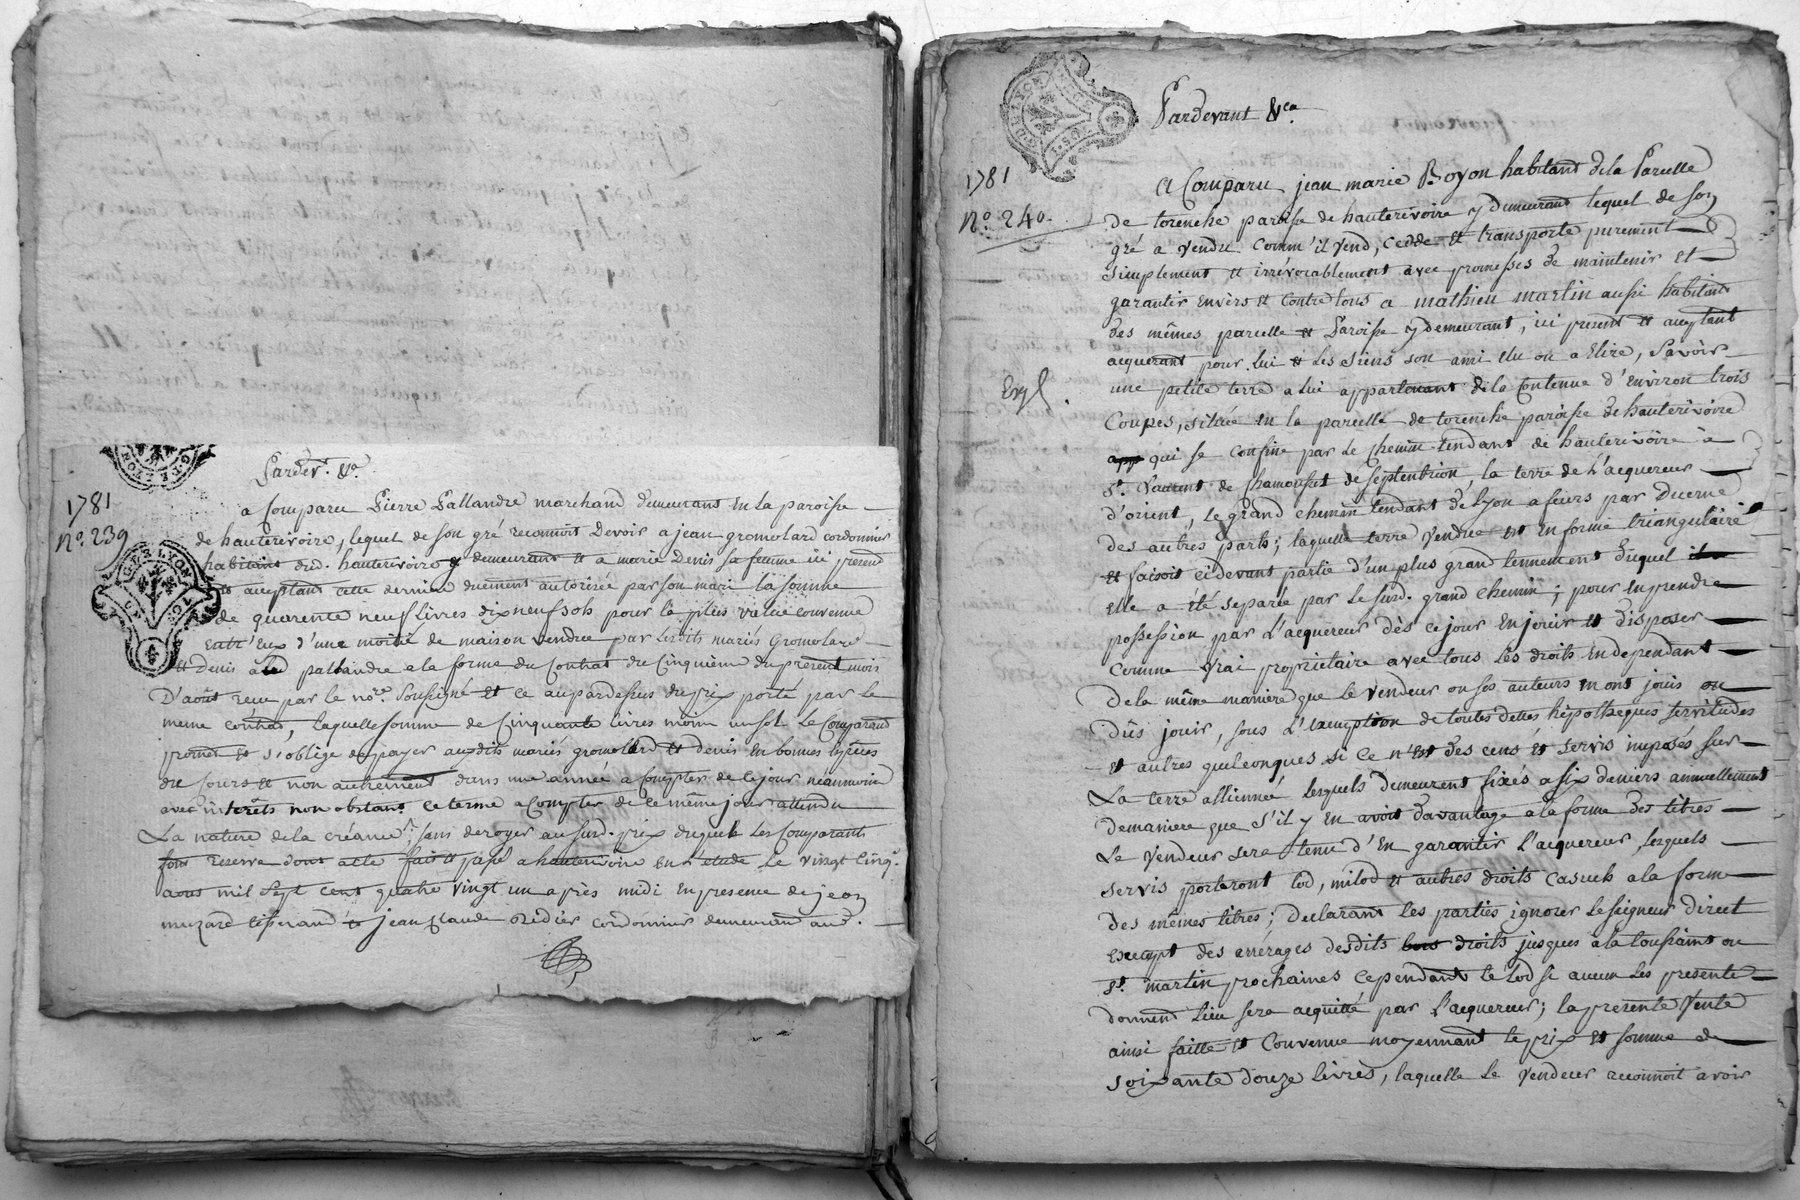 Pardev.t &a.
1781
N.o 239
a Comparu Pierre Pallandre marchand demeurant en la paroisse
de hauterivoire, lequel de son gré reconnoit devoir a jean gromolard cordonnier
habitant dud. hauterivoire y demeurant et a marie Denis sa femme ici présend
et acceptant cette derniere duement autorisée par son mari la somme
de quarente neuf livres dix neuf sols pour la plus value convenue
entr'eux d'une moitié de maison vendue par lesdits mariés Gromolard
et Denis aud pallandre a la forme du Contrat du Cinquième du présent mois
D'août reçu par le no.re Soussigné et ce au pardessus du prix porté par le
meme contrat, laquelle somme de Cinquante livres moin un sol le Comparand
promet et s'oblige de payer auxdits mariés gromolard et Denis en bonnes espèces
de Cours et non autrement dans une année a Compter de ce jour néanmoins
avec intérêts non obstant ce terme a Compter de ce même jour attendu
La nature de la créance, sans deroger au surd. prix duquel les Comparants
font reserve dont acte fait et passé a hauterivoire en l'etude le vingt Cinq.
aout mil sept cent quatre vingt un après midi en presence de jean
muzard tisserand et jean Claude Bedier cordonnier demeurand aud.
Pardevant &ca.
1781
N.o 240.
A Comparu jean marie Royon habitant de la Parcelle
de torenche paroisse de hauterivoire y demeurant lequel de son
gré a vendu comm'il vend, cedde et transporte purement
simplement et irrévocablement avec promesses de maintenir et
garantir envers et contre tous a mathieu martin aussi habitant
des mêmes parcelle et Paroisse y demeurant, ici présent et acceptant
acquerant pour lui et les siens son ami elu ou a Elire, Savoir
Expl.
une petite terre a lui appartenant de la Contenue d'environ trois
Coupes, située en la parcelle de torenche paroisse de hauterivoire
app qui se Confine par le Chemin tendant de hauterivoire à
St. Vaurent de Chamousset de septentrion, la terre de l'acquereur
d'orient, le grand chemin tendant de Lyon a feurs par Duerne
des autres parts; laquelle terre vendue est en forme triangulaire
et faisoit cidevant partie d'un plus grand tennement duquel il
elle a été separée par le surd. grand chemin; pour en prendre
possession par l'acquereur dès ce jour en jouir et disposer
comme vrai propriétaire avec tous les droits en dependant
de la même maniere que le vendeur ou ses auteurs en ont jouis ou
dûs jouir, sous l'exemption de toutes dettes hipotheques servitudes
et autres quelconques si ce n'est des cens et servis imposés sur
La terre alliennée lesquels demeurent fixés a six deniers annuellement
de maniere que s'il y en avoit davantage a la forme des titres
Le vendeur sera tenu d'en garantir l'acquereur, lesquels
servis porteront lod, milod et autres droits casuels a la forme
des mêmes titres; declarant les parties ignorer le seigneur direct
excempt des arrérages desdits droits jusques à la toussaint ou
St. martin prochaines cependant le lod si aucun les presente
donnent lieu sera acquitté par l'acquereur; la presente vente
ainsi faitte et Convenue moyennant le prix et somme de
soixante douze livres, laquelle le vendeur reconnoit avoir